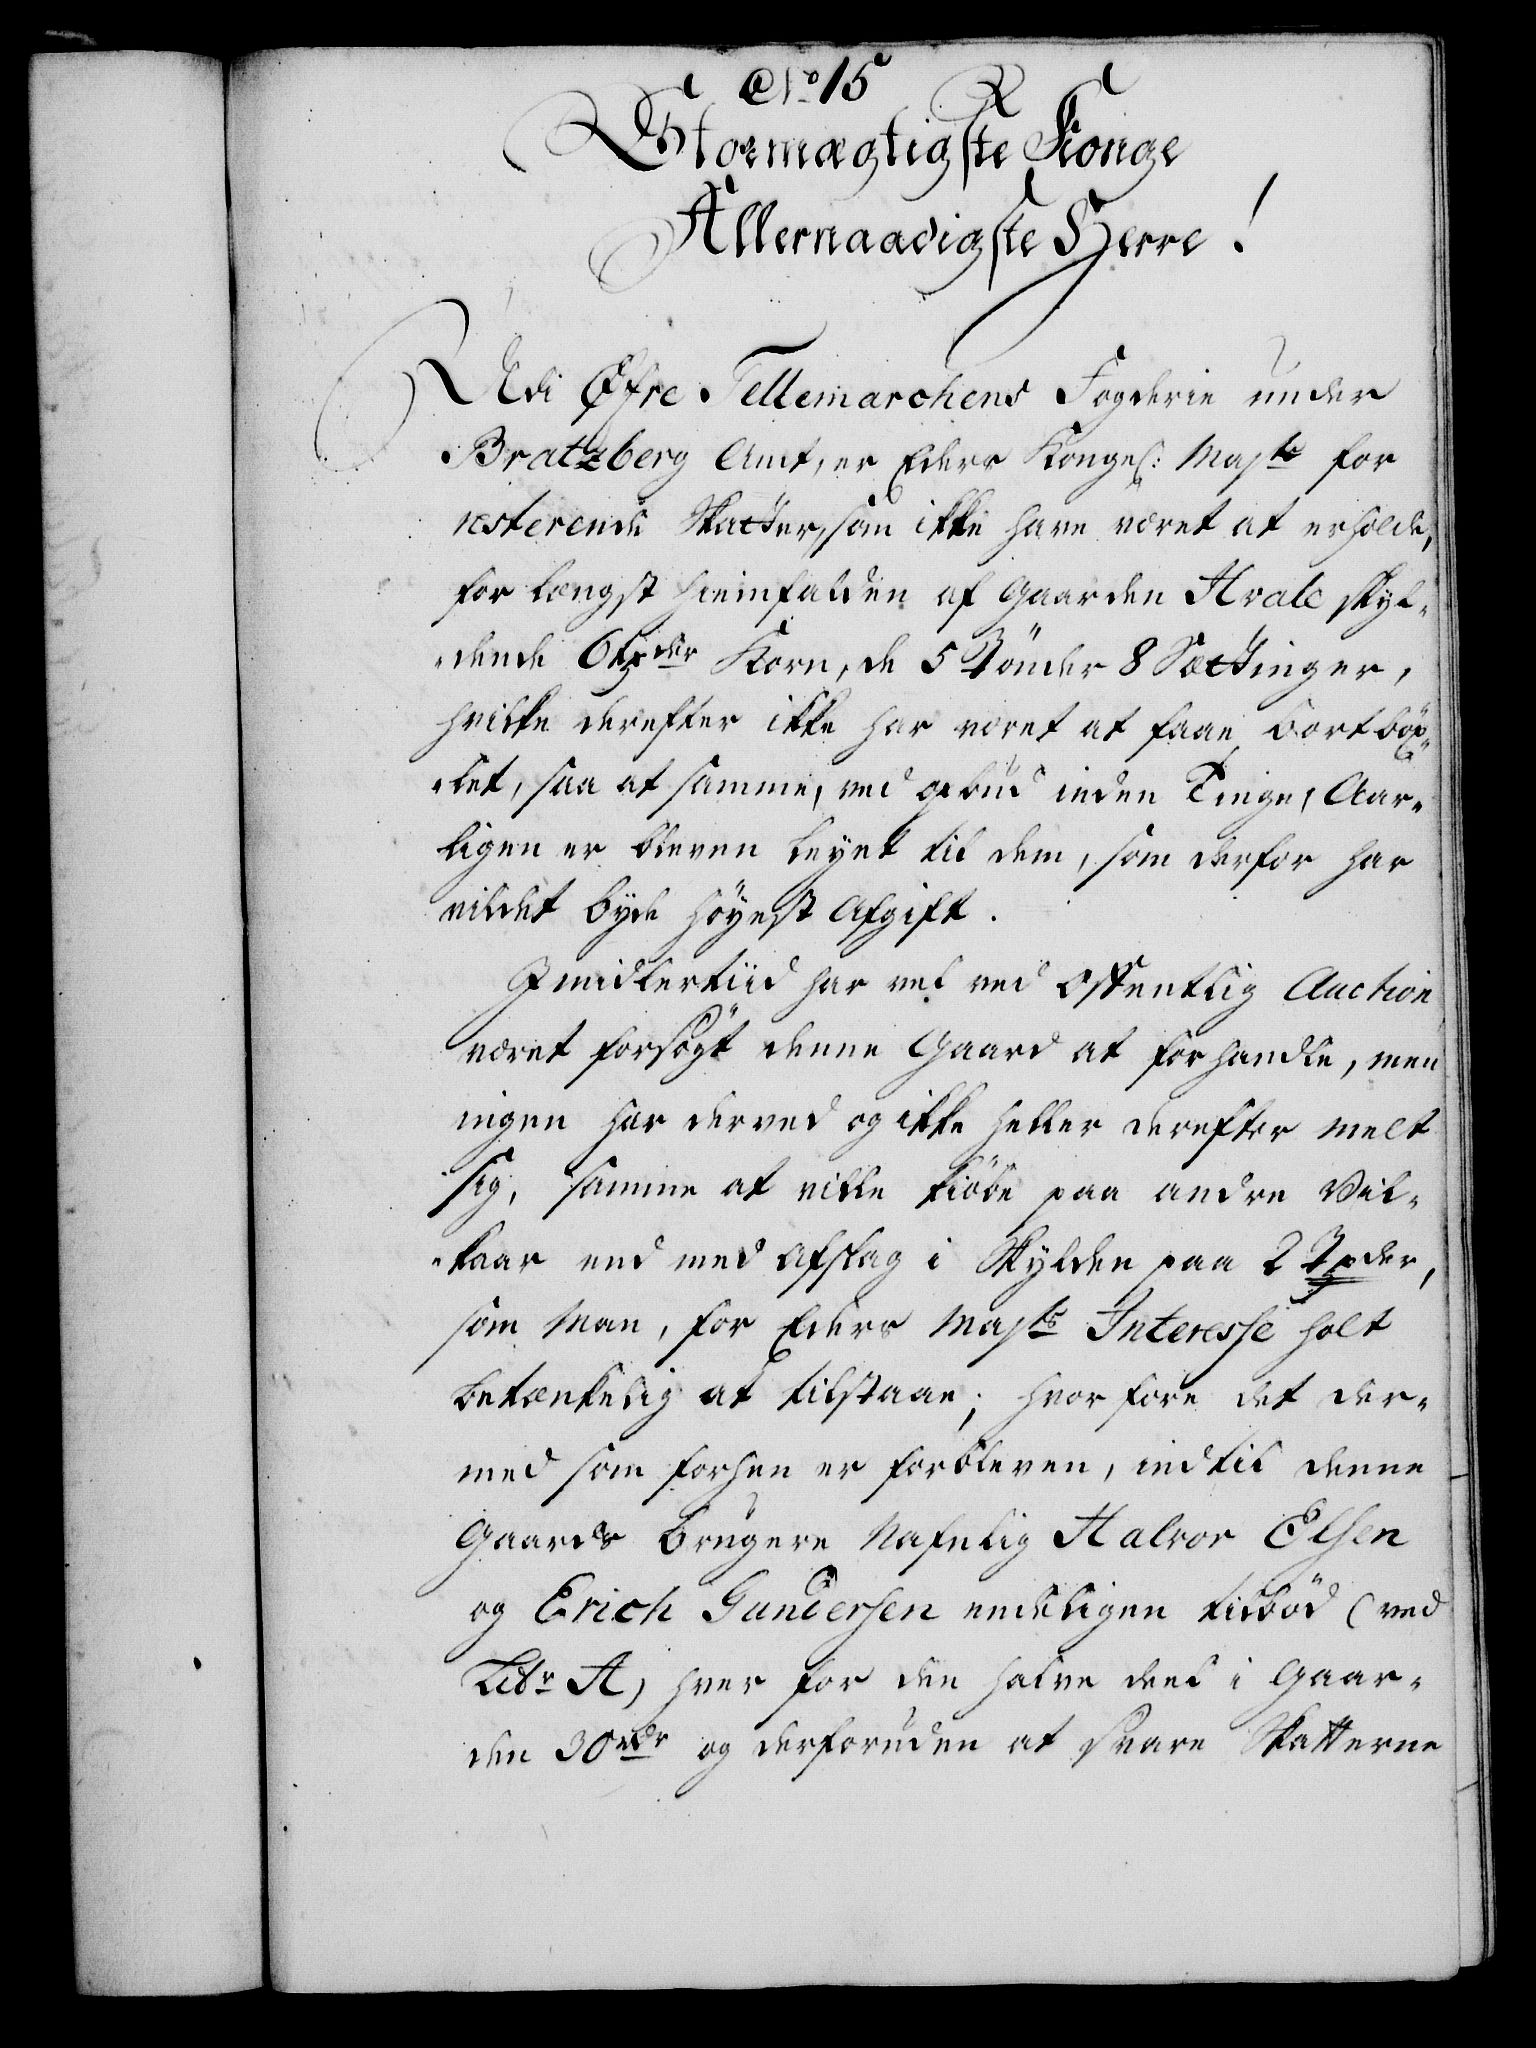 No 15
Stormægtigste Konge
Allernaadigste Herre!
Udi Øfre Tellemarchens Fogderie under
Bratzberg Amt, er Eders Kongel: Mayts for
resterende Skatter, som ikke have været at erholde,
for længst hiemfalden af Gaarden Hvale skyl-
-dende 6 tdr Korn, de 5 Tönder 8 Sættinger,
hvilke derefter ikke har været at faae bortböx-
-let, saa at samme, ved opbud inden Tinge, Aar-
ligen er bleven leyet til dem, som derfor har
vildet byde höyest Afgift.
Imidlertiid har vel ved Offentlig Auction
været forsögt denne Gaard at forhandle, men
ingen har derved og ikke heller derefter meldt
sig, samme at ville kiöbe paa andre Vil-
-kaar end med Afslag i Skylden paa 2 Tdr,
som Man, for Eders Mayts Interesse holt
betænkelig at tilstaae; hvorfore det der-
med som forhen er forbleven, indtil denne
Gaards Brugere Nafnlig Halvor Elsen
og Erich Gundersen endeligen tilböd (ved
Litr A) hver for den halve deel i Gaar-
den 30 rdr og derforuden at svare Skatterne